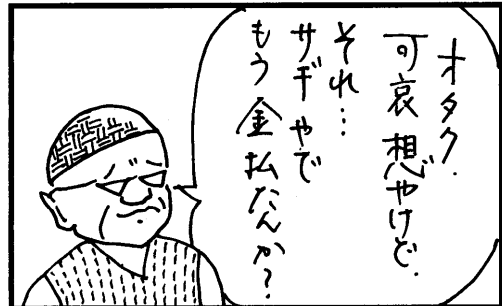 オタク.
可哀想やけど.
それ…
サギやで
もう金払たんか?